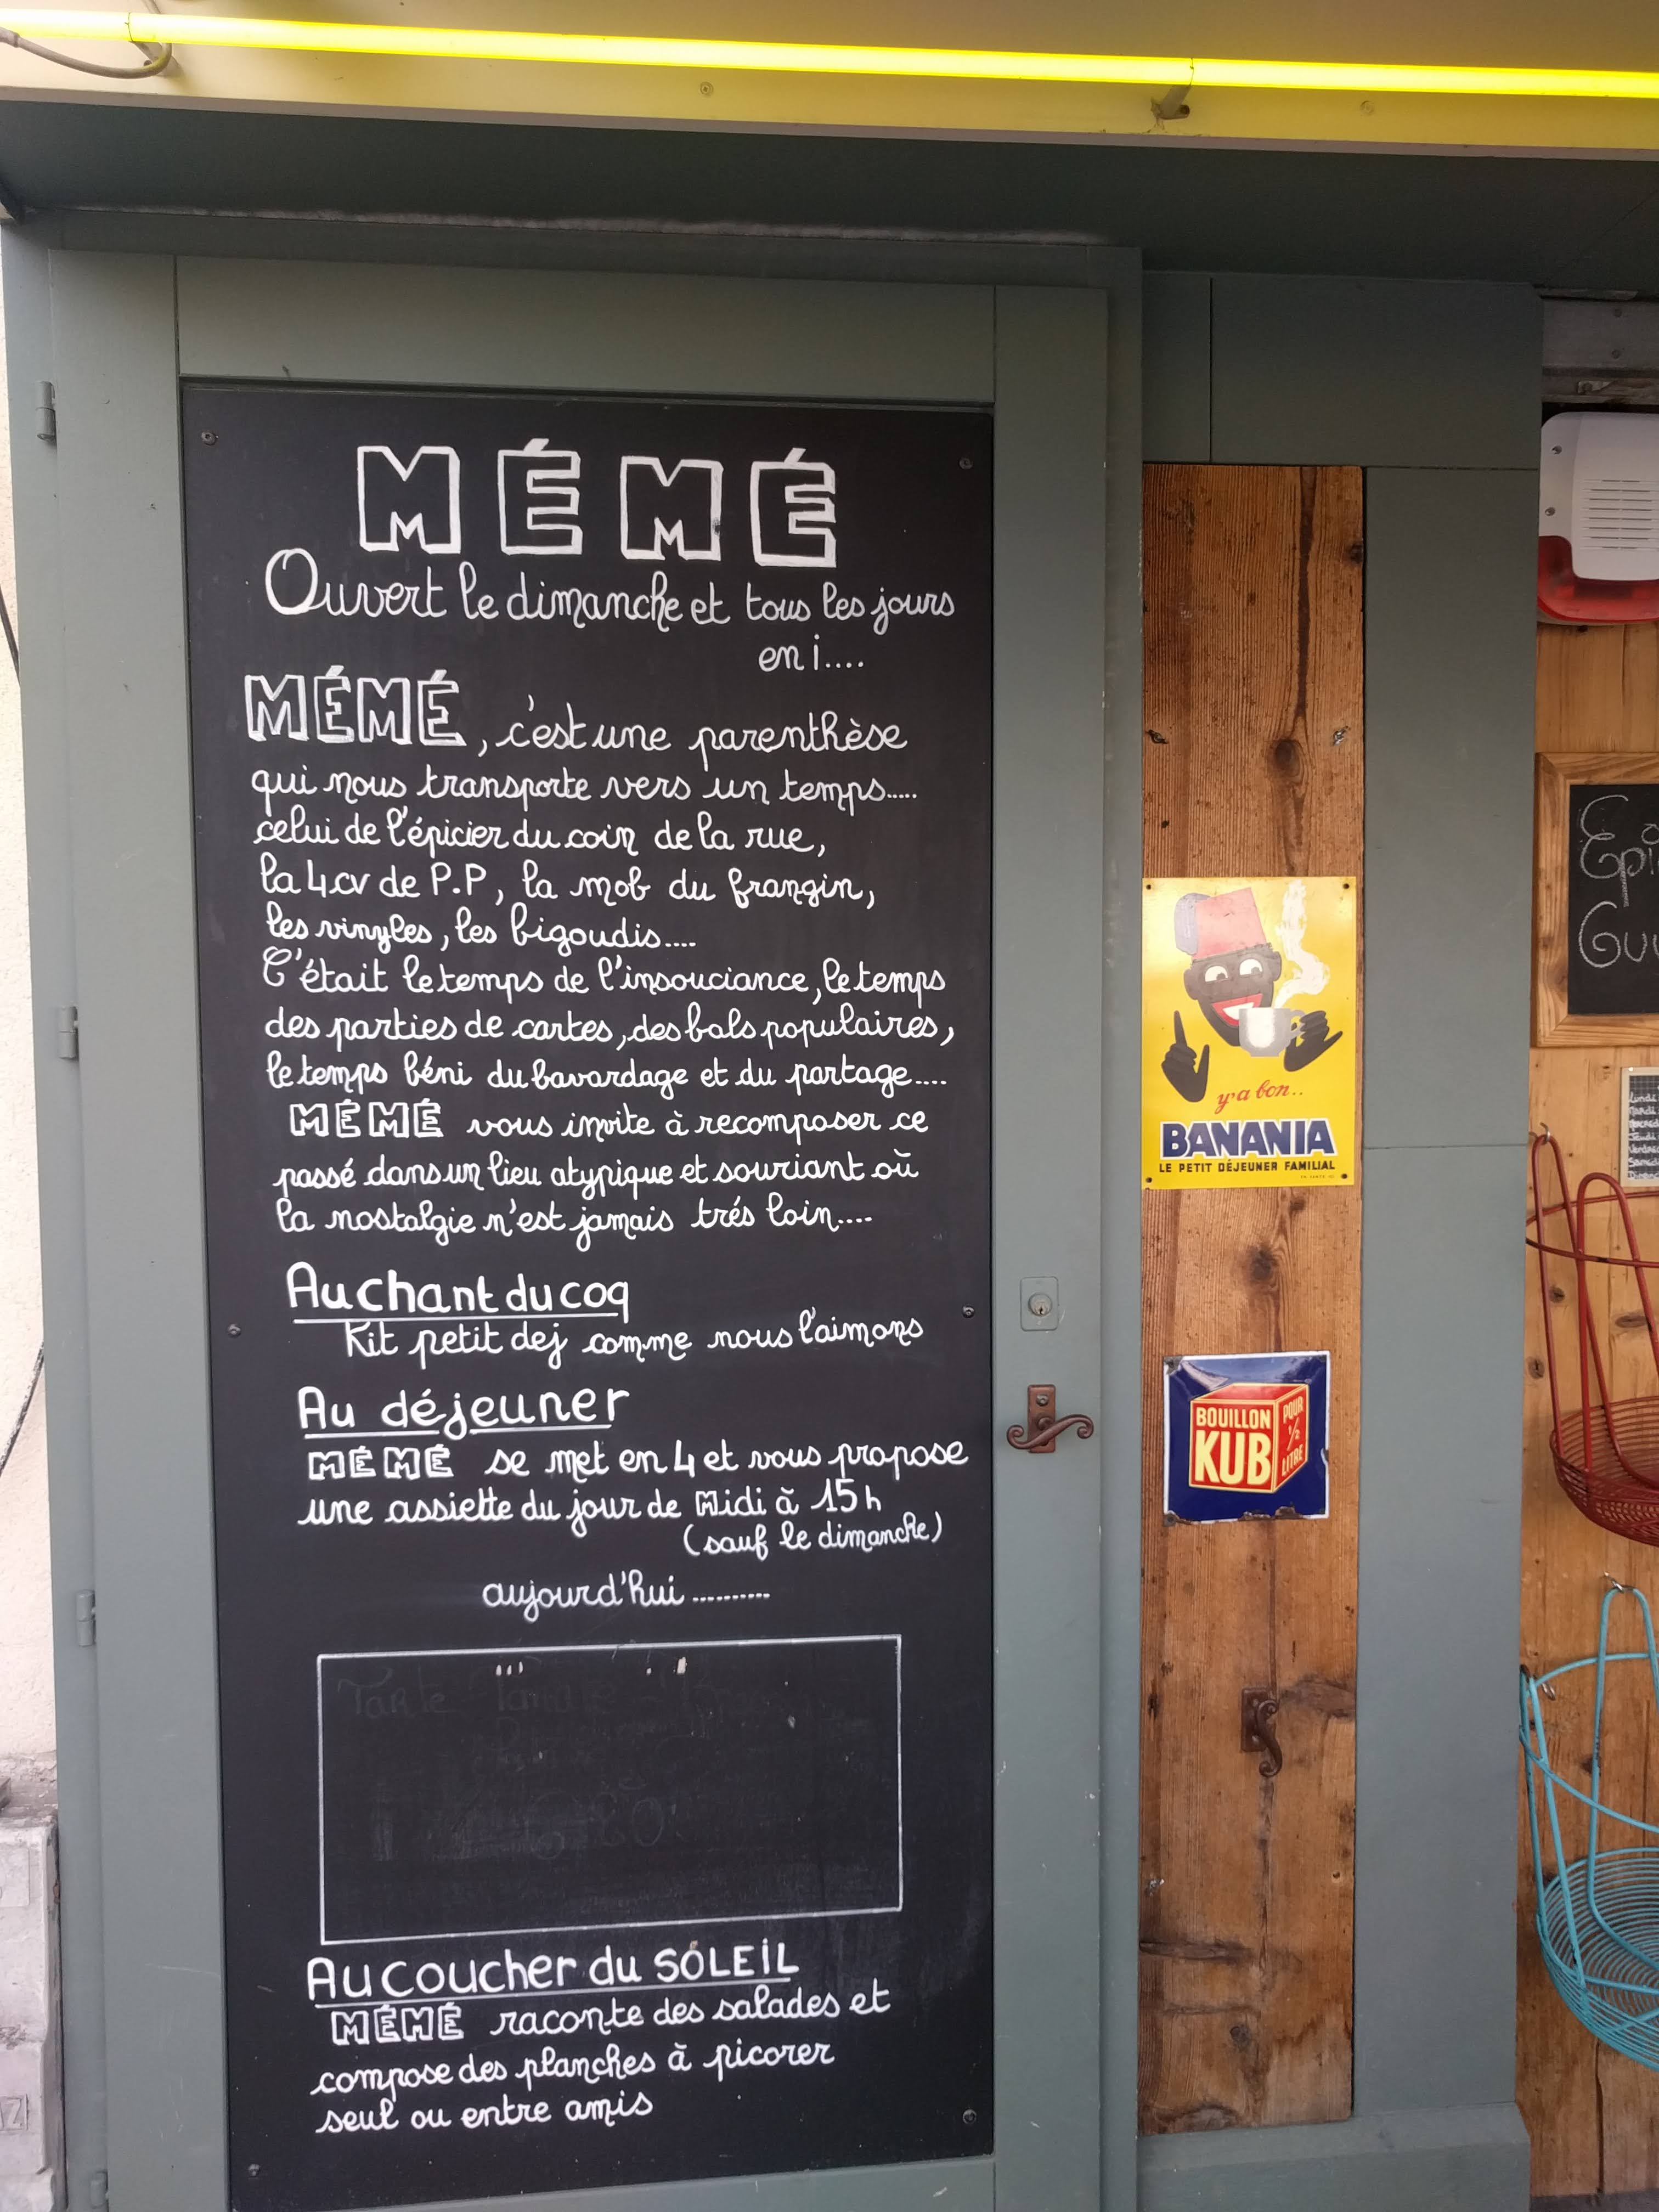 MÉMÉ
Ouvert le dimanche et tous les jours
en i....
MÉMÉ, c'est une parenthèse
qui nous transporte vers un temps.....
celui de l'épicier du coin de la rue,
la 4.cv de P.P, la mob du frangin,
les vinyles, les bigoudis....
C'était le temps de l'insouciance, le temps
des parties de cartes, des bals populaires,
le temps béni du bavardage et du partage....
MÉMÉ vous invite à recomposer ce
passé dans un lieu atypique et souriant où
la nostalgie n'est jamais trés loin....
Au chant du coq
Kit petit dej comme nous l'aimons
Au déjeuner
MÉMÉ se met en 4 et vous propose
une assiette du jour de Midi à 15h
(sauf le dimanche)
aujourd'hui ..........
Tarte
Au coucher du SOLEIL
MÉMÉ raconte des salades et
compose des planches à picorer
seul ou entre amis
y'a bon..
BANANIA
LE PETIT DÉJEUNER FAMILIAL
BOUILLON
KUB
POUR
1/2
LITRE